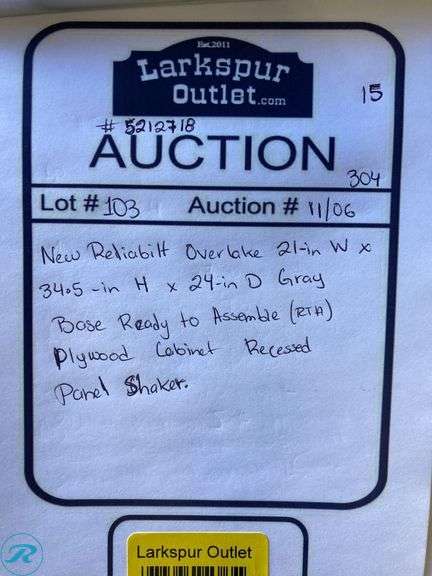 Est.2011
Larkspur
Outlet.com
15
# 5212718
AUCTION
304
Lot # 103 Auction # 11/06
New Reliabilt Overlake 21-in W x
34.5-in H x 24-in D Gray
Base Ready to Assemble (RTA)
Plywood Cabinet Recessed
Panel Shaker.
Larkspur Outlet
R